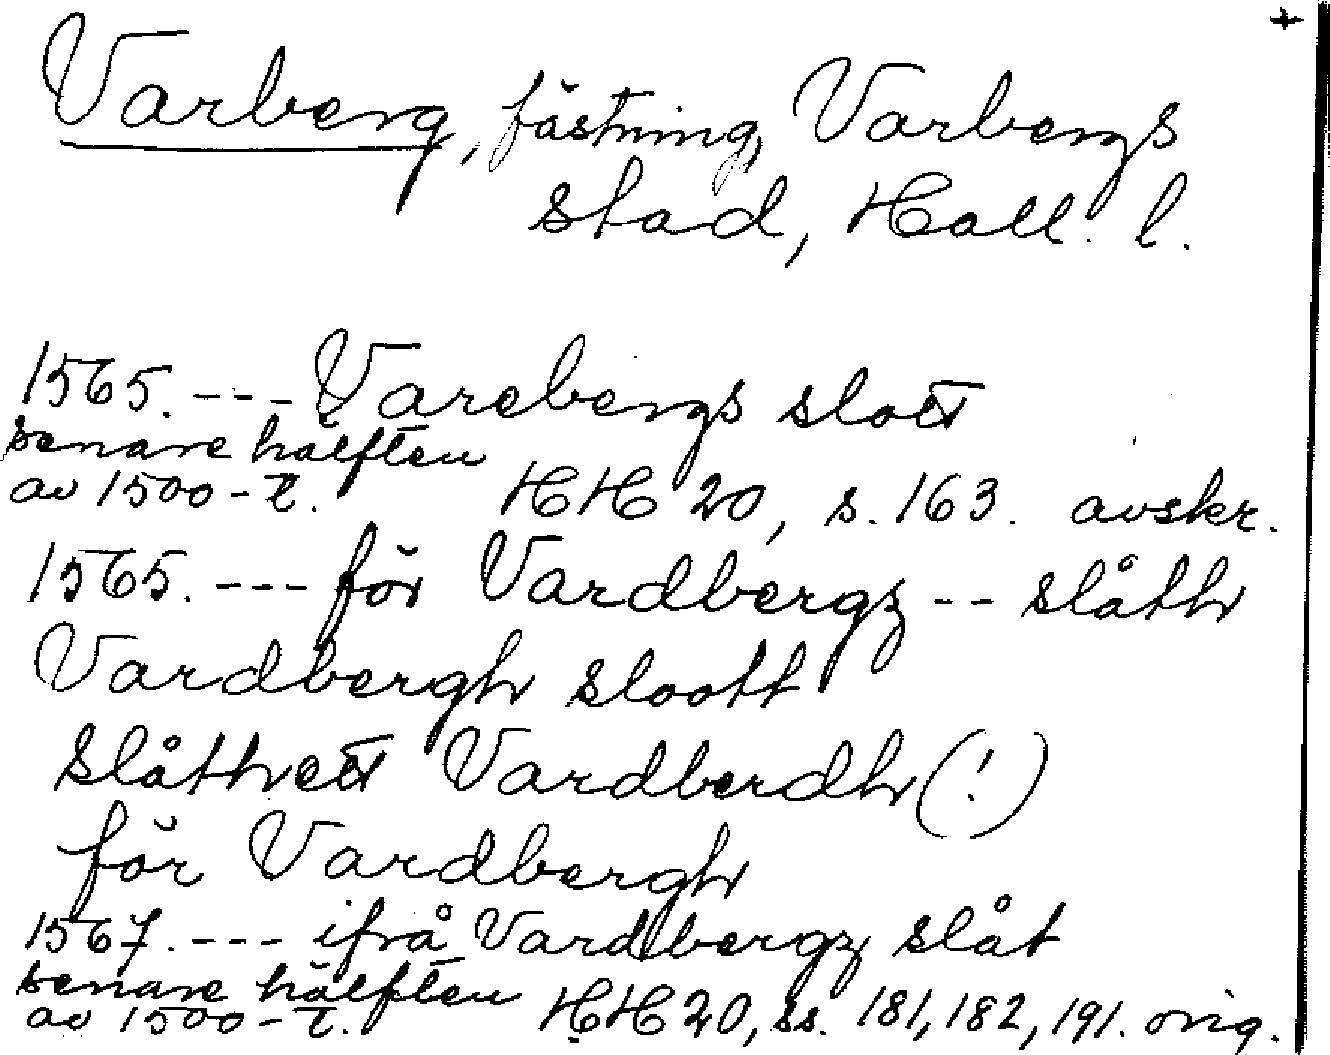 +
Varberg, fästning, Varbergs
stad, Hall. l.
1565. --- Varebergs slott
senare hälften
av 1500-t. HH 20, s. 163. avskr.
1565. --- för Vardbergz -- slåth
Vardbergh sloott
slåthett Vardberdh (!)
för Vardbergh
1567. --- ifrå Vardbergz slåt
senare hälften
av 1500-t. HH 20, ss. 181, 182, 191. orig.